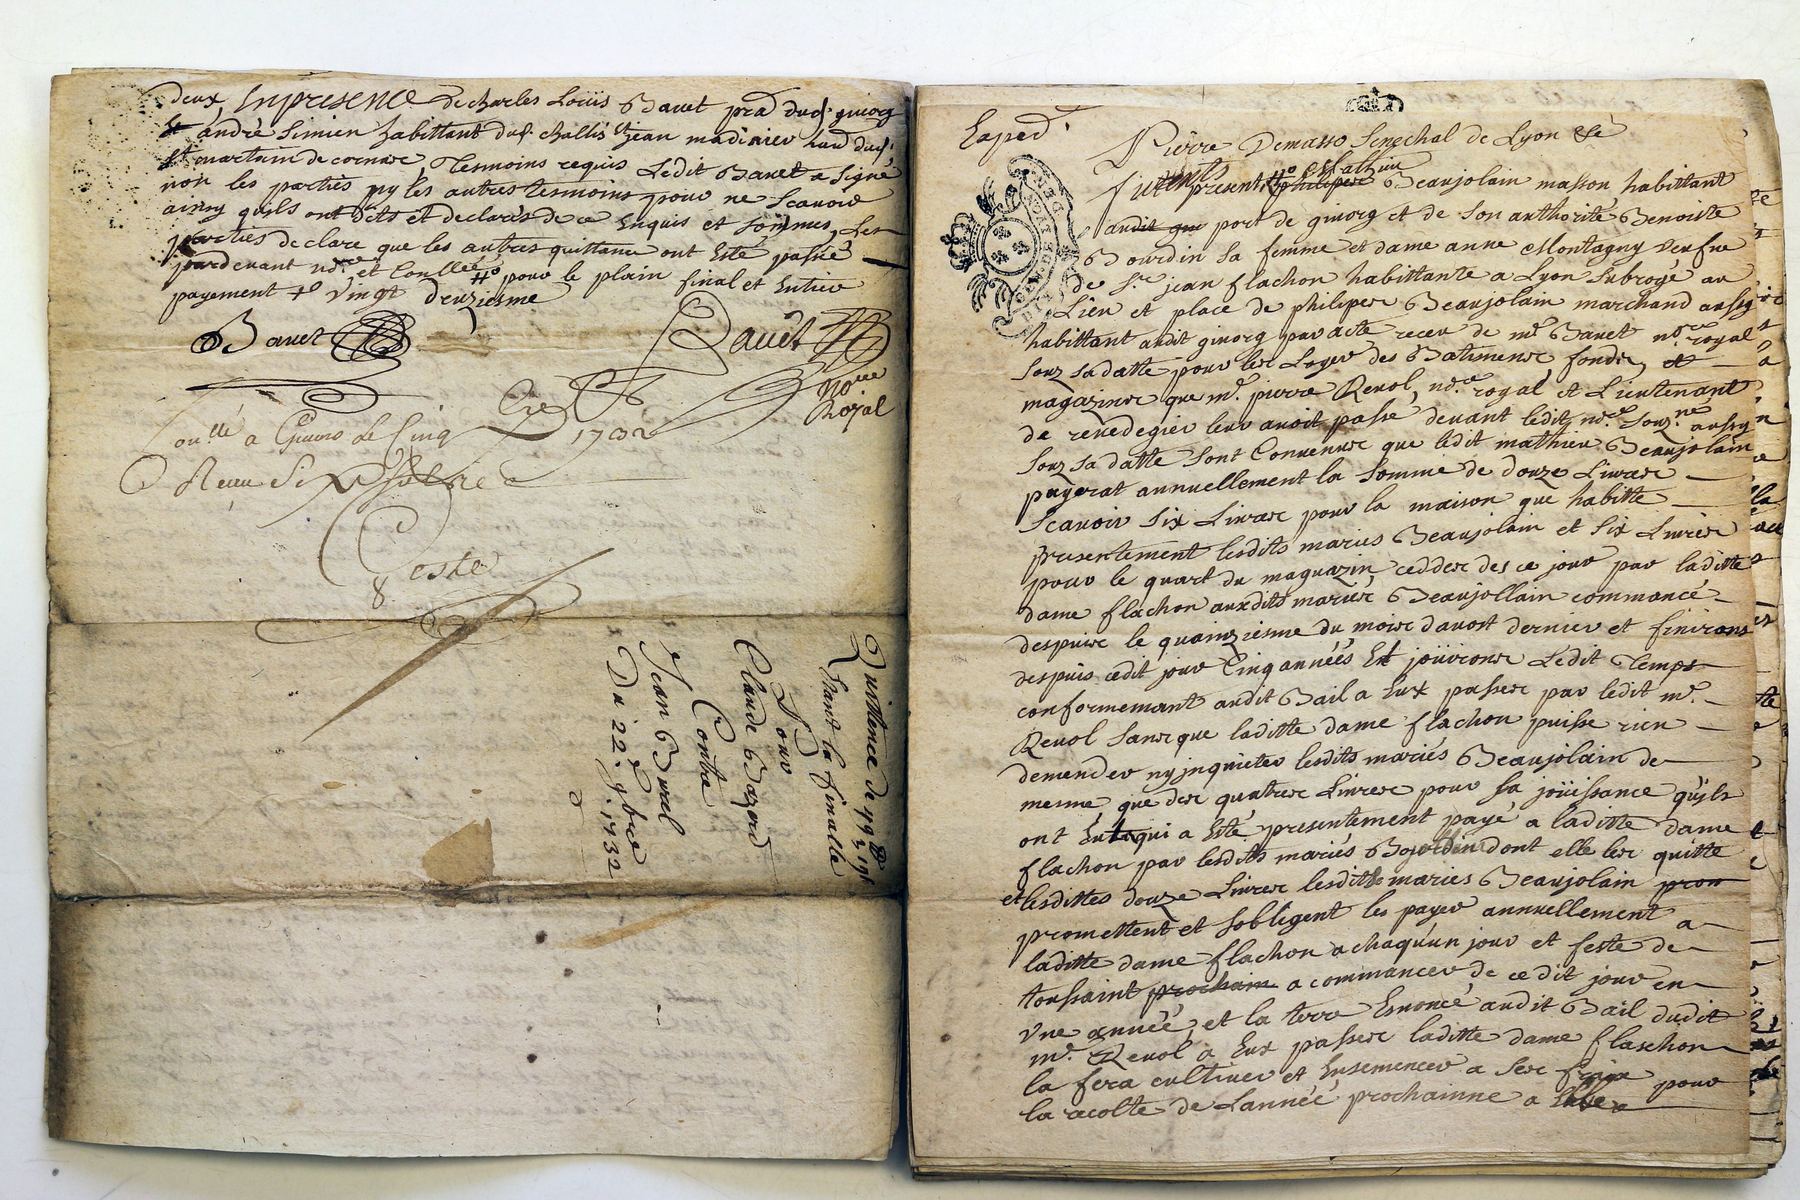 deux, En presence de charles Loüis Bavet pra. dud. givorg
et andré Simien habittant dud. challis et jean madinier hand dud.
st martain de cornas Tesmoins requis Ledit Bavet a signé
non les parties ny les autres tesmoins pour ne scavoir
ainsy quils ont dits et declarés de ce Enquis et sommes, Les
parties declare que les autres quittance ont Esté passée
pardevant nore. et Conllée pour le plain final et Entier
payement vingt deuziesme
Bavet
Bavet
Noire
Royal
Con.llé a Givors le Cinq Xbre 1732
Receu Six
Ceste
Quittence de
Etant la finalle
Pour
Claude Bazard
Contre
Jean Burel
Du 22. 9bre
1732
Exped.
Pierre Demasso Senechal de Lyon
furent present philiper Mathieu Beaujolain masson habittant
audit que port de givorg et de son authorité Benoiste
Bourdin sa femme et dame anne Montagny veufve
de Sr. jean flachon habittante a Lyon subrogé au
Lieu et place de philiper Beaujolain marchand aussy
habittant audit givorg par acte receu de me. Bavet nore. royal
souz sa datte pour les Loyer des Batimens, fonds, et
magazines que me. pierre Revol, nore. royal et Lieutenant
de rivedegier leur avoit passé devant ledit nore. souz.né aussy
souz sa datte sont Convenus que ledit mathieu Beaujolain
payerat annuellement la somme de douze Livres
scavoir six Livres pour la maison que habitte
presentement lesdits maries Beaujolain et six Livres
pour le quart du maguazin cedder des ce jour par laditte
dame flachon auxdits maries Beaujollain commancé
despuis le quainziesme du mois davost dernier et finirons
despuis cedit jour Cinq années Et joüirons Ledit Temps
conformemant audit Bail a Eux passer par ledit me.
Revol sans que laditte dame flachon puisse rien
demender ny jnquieter lesdits mariés Beaujolain de
mesme que des quatres Livres pour sa joüissance quils
ont Eu qui a Esté presentement payé a laditte dame
flachon par lesdits mariés Bojollin dont elle les quitte
et lesdittes douze Livres lesdits maries Beaujolain prom
promettent et sobligent les payer annuellement a
laditte dame flachon a chaqu'un jour et feste de
toussaint prochain a commancer de ce dit jour en
vne année, et la terre Enoncé audit Bail dudit
me. Revol a Eux passer laditte dame flaschon
la fera cultiver et Ensemencer a ses frais pour
la recolte de Lannéé prochainne a